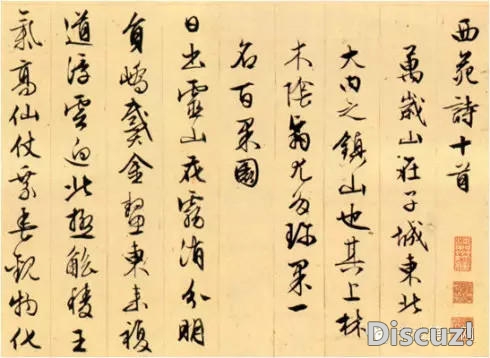 西苑詩十首
萬歲山在子城東北
大內之鎮山也其上林
木陰翳尤多珍果一
名百果園
日出靈山花霧消分明
員嶠戴金鰲東來複
道浮雲迥北極觚稜王
氣高仙仗乘春觀物化
Discuz!